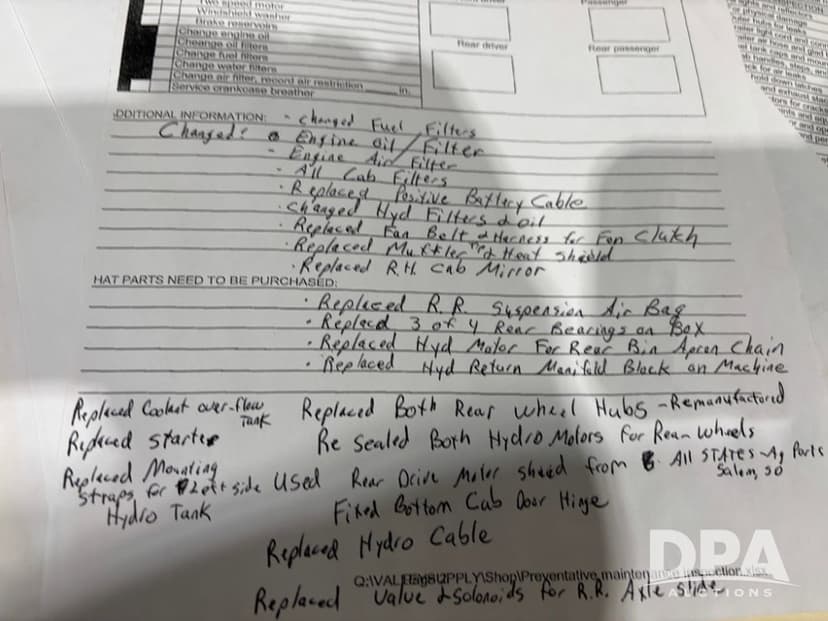 Two speed motor
Windshield washer
Brake reservoirs
Change engine oil
Cheange oil filters
Change fuel filters
Change water filters
Change air filter, record air restriction in.
Service crankcase breather
Passenger
Rear driver
Rear passenger
DDITIONAL INFORMATION: - Changed Fuel Filters
Changed: Engine oil / Filter
- Engine Air Filter
- All Cab Filters
- Replaced Positive Battery Cable
- Changed Hyd Filters & oil
- Replaced Fan Belt & Harness for Fan Clutch
- Replaced Muffler and Heat Sheild
- Replaced R.H. Cab Mirror
HAT PARTS NEED TO BE PURCHASED:
- Replaced R.R. Suspension Air Bag
- Replaced 3 of 4 Rear Bearings on Box
- Replaced Hyd Motor For Rear Bin Apron Chain
- Replaced Hyd Return Manifold Block on Machine
Replaced Coolant over-flow Tank
Replaced Both Rear Wheel Hubs - Remanufactured
Replaced Starter
Re Sealed Both Hydro Motors for Rear Wheels
Replaced Mounting
Straps for left side
Hydro Tank
Used Rear Drive Motor Sheed from All STATES Ag Parts
Salem, SD
Fixed Bottom Cab Door Hinge
Replaced Hydro Cable
Replaced Valve & Solonoids for R.R. Axle Slide
DPA
AUCTIONS